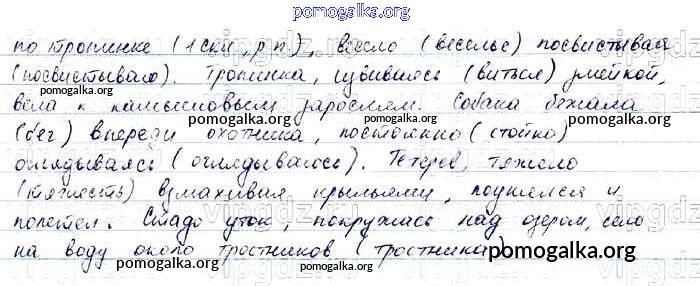 pomogalka.org
по тропинке (1 скл., р.п.), весело (веселье) посвистывая
(посвистываю). Тропинка, извиваясь (виться) змейкой,
вела к камышовым зарослям. Собака бежала
pomogalka.org pomogalka.org
(бег) впереди охотника, постоянно (стойко)
оглядываясь (оглядываюсь). Тетерев, тяжело
(тяжесть) взмахивая крыльями, поднялся и
полетел. Стадо уток, покружась над озером, село
на воду около тростников (тростника)
pomogalka.org pomogalka.org
pomogalka.org
vipgdz.ru